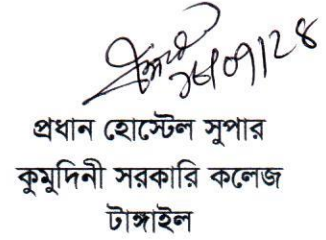 প্রধান হোস্টেল সুপার
কুমুদিনী সরকারি কলেজ
টাঙ্গাইল